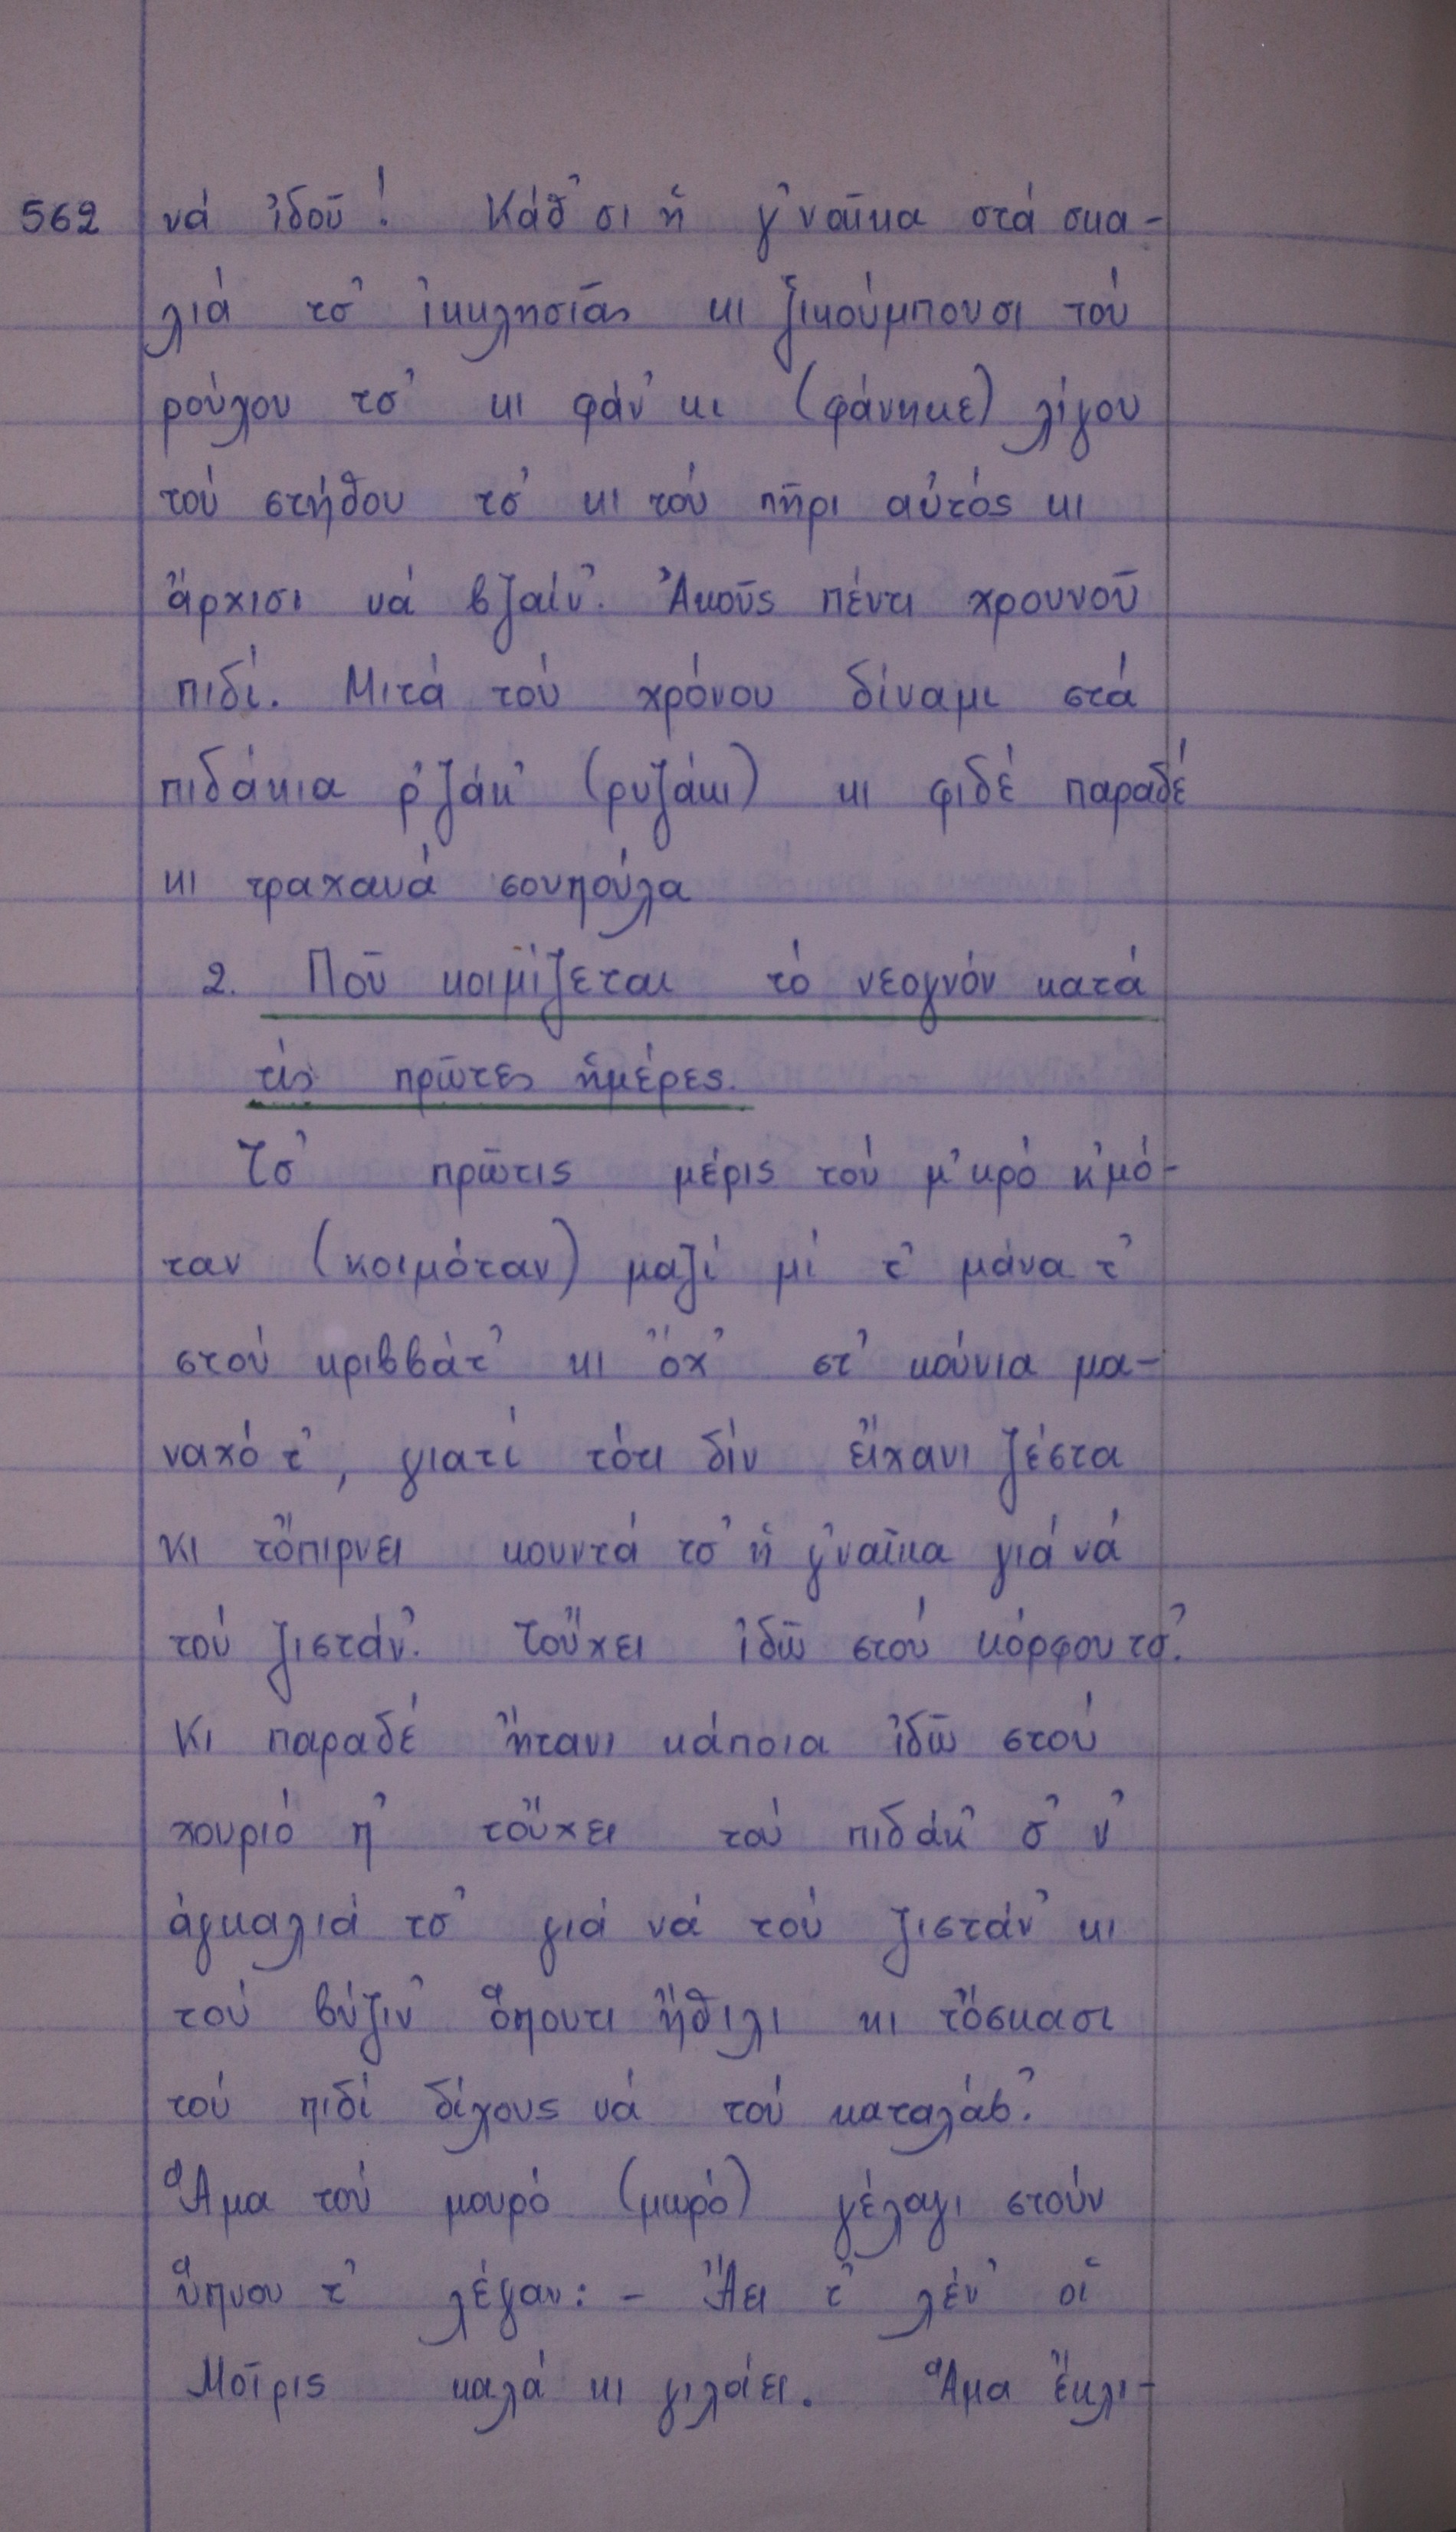 562 νά ἰδοῦ! Κάθ᾿σι ἡ γ᾿ναῖκα στά σκα-
λιά τσ᾿ ἰκκλησιᾶς κι ξικούμπουσι τού
ρούχου τσ᾿ κι φάν᾿κι (φάνηκε) λίγου
τού στήθου τσ᾿ κι τού πῆρι αὐτός κι
ἄρχισι νά βζαίν᾿. Ἀκοῦς πέντι χρουνοῦ
πιδί. Μιτά τού χρόνου δίναμι στά
πιδάκια ρ᾿ζάκ᾿ (ρυζάκι) κι φιδέ παραδέ
κι τραχανά σουπούλα
2. Ποῦ κοιμίζεται τό νεογνόν κατά
τίς πρῶτες ἡμέρες.
Τσ᾿ πρῶτις μέρις τού μ᾿κρό κ᾿μό-
ταν (κοιμόταν) μαζί μί τ᾿ μάνα τ᾿
στού κριββάτ᾿ κι ὄχ᾿ στ᾿ κούνια μα-
ναχό τ᾿, γιατί τότι δίν εἴχανι ζέστα
κι τὄπιρνει κουντά τσ᾿ ἡ γ᾿ναῖκα γιά νά
τού ζιστάν᾿. Τοὔχει ἰδῶ στού κόρφου τσ᾿.
Κι παραδέ ἤτανι κάποια ἰδῶ στού
χουριό π᾿ τοὔχει τού πιδάκ᾿ σ᾿ ν᾿
ἀγκαλιά τσ᾿ γιά νά τού ζιστάν᾿ κι
τού βύζιν᾿ ὅπουτι ἤθιλι κι τὄσκασι
τού πιδί δίχους νά τού καταλάβ᾿.
Ἅμα τού μουρό (μωρό) γέλαγι στούν
ὕπνου τ᾿ λέγαν: - Ἄει τ᾿ λέν᾿ οἱ
Μοῖρις καλά κι γιλάει. Ἅμα ἔκλι-